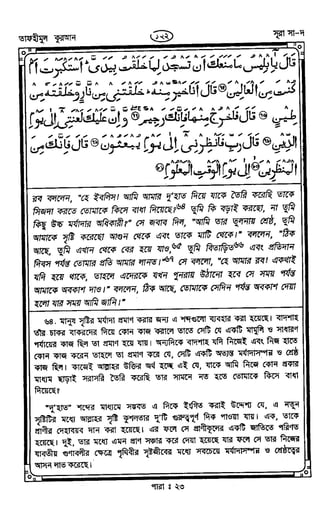 তাফহীমুল কুরআন
১২২
সূরা সা-দ
قَالَ يٰٓاِبْلِيْسُ مَا مَنَعَكَ اَنْ تَسْجُدَ لِمَا خَلَقْتُ بِيَدَىَّ ؕ اَسْتَكْبَرْتَ اَمْ
كُنْتَ مِنَ الْعَالِيْنَ ﴿۷۵﴾ قَالَ اَنَا خَيْرٌ مِّنْهُ ؕ خَلَقْتَنِىْ مِنْ نَّارٍ وَّخَلَقْتَهٗ مِنْ
طِيْنٍ ﴿۷۶﴾ قَالَ فَاخْرُجْ مِنْهَا فَاِنَّكَ رَجِيْمٌ ﴿۷۷﴾ وَّاِنَّ عَلَيْكَ لَعْنَتِىْٓ اِلٰى يَوْمِ
الدِّيْنِ ﴿۷۸﴾ قَالَ رَبِّ فَاَنْظِرْنِىْٓ اِلٰى يَوْمِ يُبْعَثُوْنَ ﴿۷۹﴾ قَالَ فَاِنَّكَ مِنَ
الْمُنْظَرِيْنَ ﴿۸۰﴾ اِلٰى يَوْمِ الْوَقْتِ الْمَعْلُوْمِ ﴿۸۱﴾
রব বললেন, “হে ইবলিস! আমি আমার দু’হাত দিয়ে যাকে তৈরি করেছি তাকে
সিজদা করতে তোমাকে কিসে বাধা দিয়েছে?৬৪ তুমি কি বড়াই করছো, না তুমি
কিছু উচ্চ মর্যাদার অধিকারী?” সে জবাব দিল, “আমি তার তুলনায় শ্রেষ্ঠ, তুমি
আমাকে সৃষ্টি করেছো আগুন থেকে এবং তাকে মাটি থেকে।” বললেন, “ঠিক
আছে, তুমি এখান থেকে বের হয়ে যাও,৬৫ তুমি বিতাড়িত৬৬ এবং প্রতিদান
দিবস পর্যন্ত তোমার প্রতি আমার লানত।”৬৭ সে বললো, “হে আমার রব! একথাই
যদি হয়ে থাকে, তাহলে এদেরকে যখন পুনরায় উঠানো হবে সে সময় পর্যন্ত
আমাকে অবকাশ দাও।” বললেন, ঠিক আছে, তোমাকে সেদিন পর্যন্ত অবকাশ দেয়া
হলো যার সময় আমি জানি।”
৬৪. মানুষ সৃষ্টির মর্যাদা প্রমাণ করার জন্য এ শব্দগুলো ব্যবহার করা হয়েছে। বাদশাহ
তাঁর চাকর বাকরদের দিয়ে কোন কাজ করালে তাতে সেটি যে একটি মামুলি ও সাধারণ
পর্যায়ের কাজ ছিল তা প্রমাণ হয়ে যায়। অন্যদিকে বাদশাহ যদি নিজেই এবং নিজ হাতে
কোন কাজ করেন তাহলে তা প্রমাণ করে যে, সেটি একটি অত্যন্ত মর্যাদাসম্পন্ন ও শ্রেষ্ঠ
কাজ ছিল। কাজেই আল্লাহর উক্তির অর্থ হচ্ছে এই যে, যাকে আমি নিজে কোন প্রকার
মাধ্যম ছাড়াই সরাসরি তৈরি করেছি তার সামনে নত হতে তোমাকে কিসে বাধা
দিয়েছে?
“দু’হাত” শব্দের মাধ্যমে সম্ভবত এ দিকে ইংগিত করাই উদ্দেশ্য যে, এ নতুন
সৃষ্টিটির মধ্যে আল্লাহর সৃষ্টি কুশলতার দু’টি গুরুত্বপূর্ণ দিক পাওয়া যায়। এক, তাকে
প্রাণীর দেহাবয়ব দান করা হয়েছে। এর ফলে সে প্রাণীকূলের একটি জাতিতে পরিণত
হয়েছে। দুই, তার মধ্যে এমন প্রাণ সঞ্চার করে দেয়া হয়েছে যার ফলে সে তার নিজের
যাবতীয় গুণাবলীর ক্ষেত্রে পৃথিবীর সৃষ্টজীবের মধ্যে সবচেয়ে মর্যাদাসম্পন্ন ও শ্রেষ্ঠত্বের
আসন লাভ করেছে।
পারা : ২৩